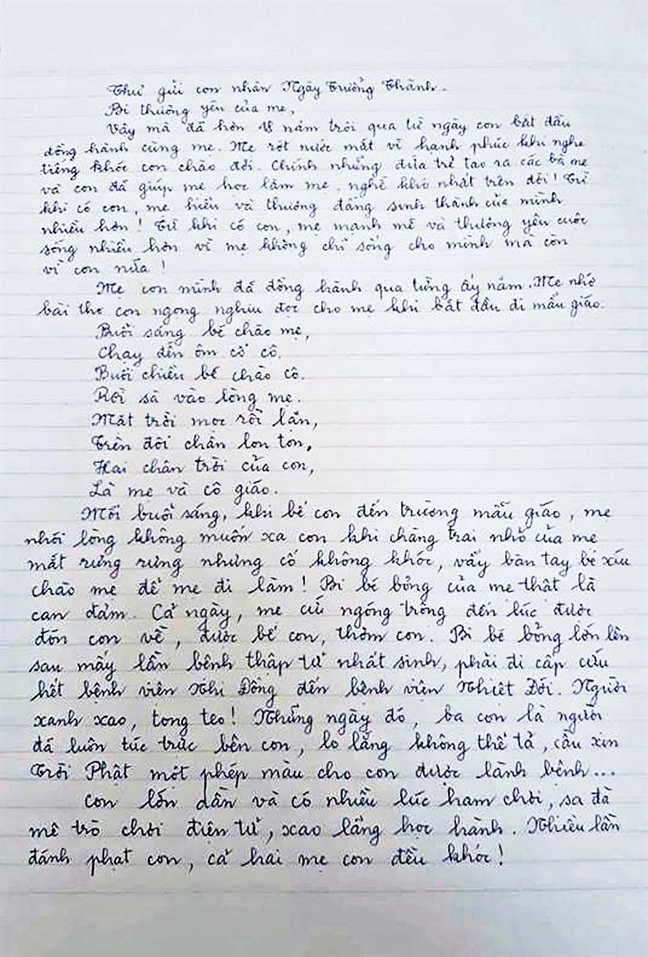 Thư gửi con nhân Ngày Trưởng Thành.
Bi thương yêu của mẹ,
Vậy mà đã hơn 18 năm trời qua từ ngày con bắt đầu
đồng hành cùng mẹ. Mẹ rớt nước mắt vì hạnh phúc khi nghe
tiếng khóc con chào đời. Chính những đứa trẻ tạo ra các bà mẹ
và con đã giúp mẹ học làm mẹ, nghề khó nhất trên đời! Từ
khi có con, mẹ hiểu và thương đấng sinh thành của mình
nhiều hơn! Từ khi có con, mẹ mạnh mẽ và thương yêu cuộc
sống nhiều hơn vì mẹ không chỉ sống cho mình mà còn
vì con nữa!
Mẹ con mình đã đồng hành qua từng ấy năm. Mẹ nhớ
bài thơ con ngọng nghịu đọc cho mẹ khi bắt đầu đi mẫu giáo:
Buổi sáng bé chào mẹ,
Chạy đến ôm cổ cô.
Buổi chiều bé chào cô.
Rồi sà vào lòng mẹ.
Mặt trời mọc rồi lặn,
Trên đôi chân lon ton,
Hai chân trời của con,
Là mẹ và cô giáo.
Mỗi buổi sáng, khi bế con đến trường mẫu giáo, mẹ
nhói lòng không muốn xa con khi chàng trai nhỏ của mẹ
mắt rưng rưng nhưng cố không khóc, vẫy bàn tay bé xíu
chào mẹ để mẹ đi làm! Bi bé bỏng của mẹ thật là
can đảm. Cả ngày, mẹ cứ ngóng trông đến lúc được
đón con về, được bế con, thơm con. Bi bé bỏng lớn lên
sau mấy lần bệnh thập tử nhất sinh, phải đi cấp cứu
hết bệnh viện Nhi Đồng đến bệnh viện Nhiệt Đới. Người
xanh xao, tong teo! Những ngày đó, ba con là người
đã luôn túc trực bên con, lo lắng không thể tả, cầu xin
Trời Phật một phép màu cho con được lành bệnh...
Con lớn dần và có nhiều lúc ham chơi, sa đà
mê trò chơi điện tử, xao lãng học hành. Nhiều lần
đánh phạt con, cả hai mẹ con đều khóc!